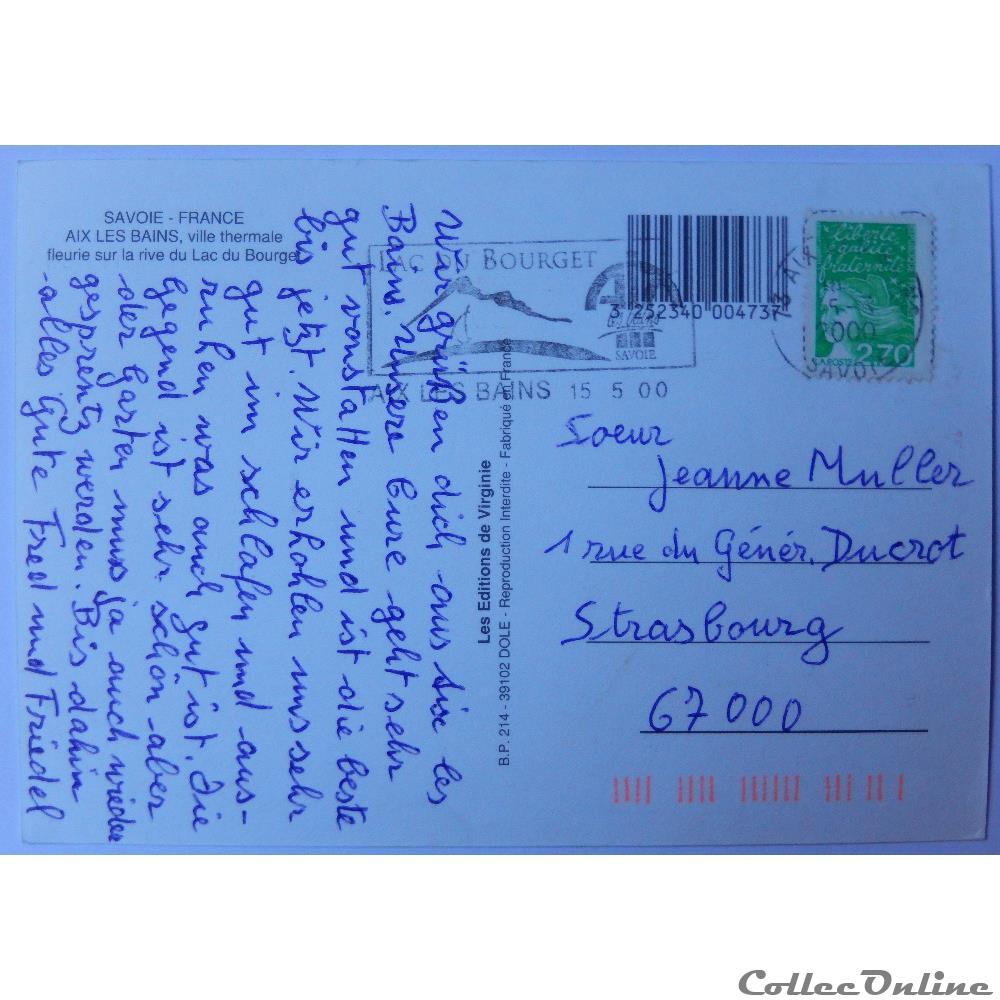 SAVOIE - FRANCE
AIX LES BAINS, ville thermale
fleurie sur la rive du Lac du Bourget
Wir grüßen dich aus Aix les
Bains. Unsere Cure geht sehr
gut vonstatten und ist die beste
bis jetzt. Wir erholen uns sehr
gut im schlafen und aus-
ruhen was auch gut ist. Die
Gegend ist sehr schön aber
der Garten muss ja auch wieder
gesprentz werden. Bis dahin
alles Gute Fred und Friedel
LAC DU BOURGET
Aix
les Bains
SAVOIE
AIX LES BAINS 15 5 00
Les Editions de Virginie
B.P. 214 - 39102 DOLE - Reproduction Interdite - Fabriqué en France
3 252340 004737
Liberté
égalité
fraternité
LA POSTE 2,70
2000
SAVOIE
Soeur
Jeanne Muller
1 rue du Génér. Ducrot
Strasbourg
67000
CollecOnline